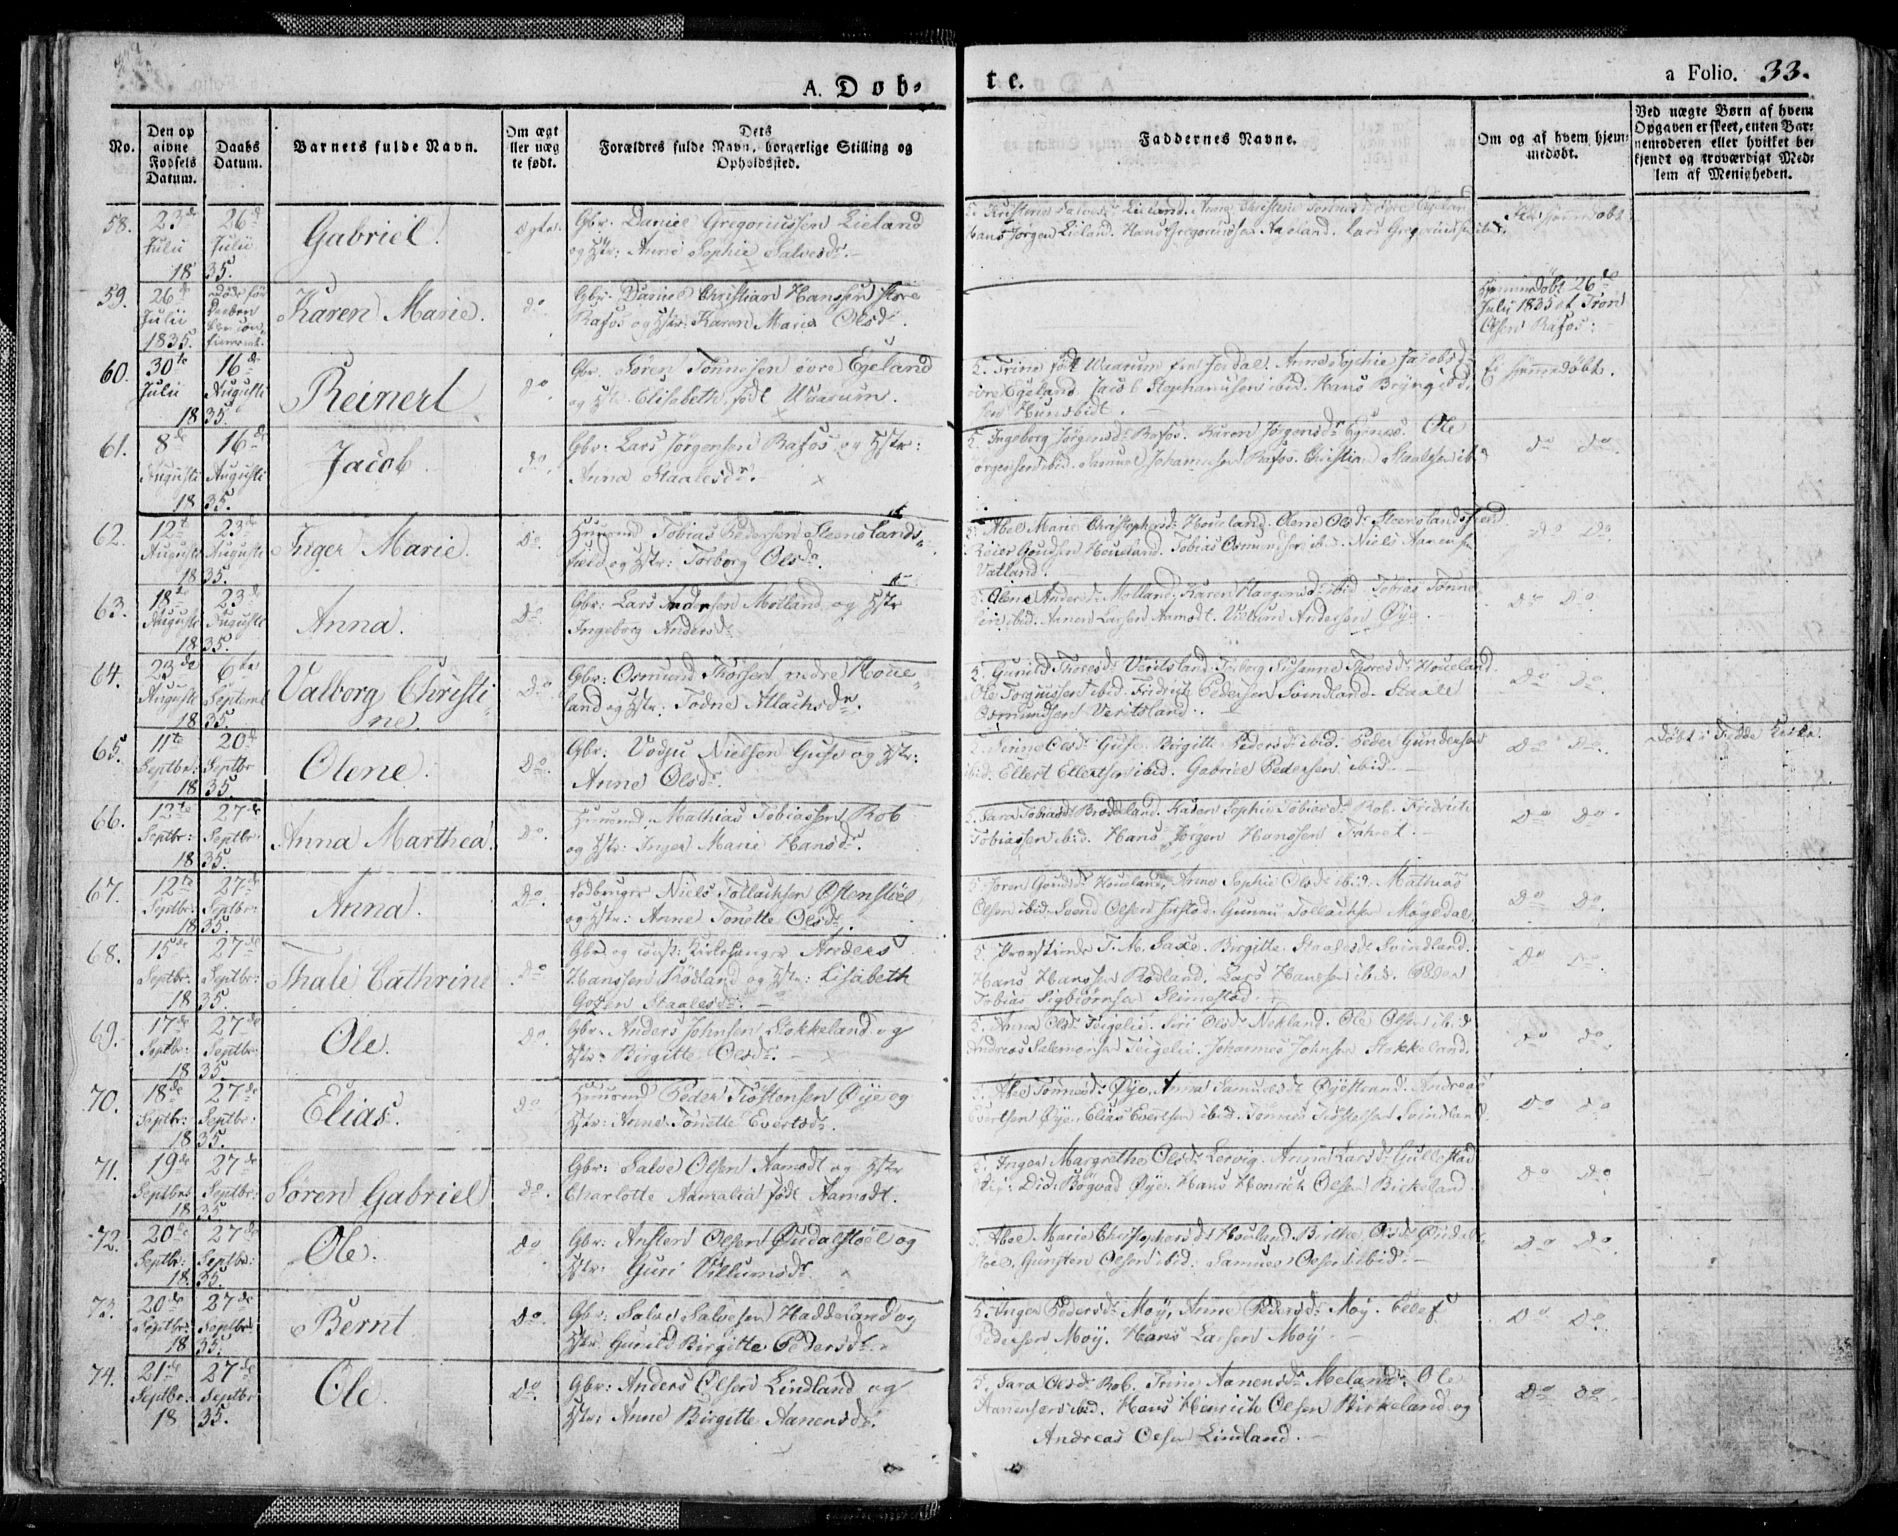 A. Døb-
te.
a Folio. 33.
No.
Den op
givne
Fødsels
Datum.
Daabs
Datum.
Barnets fulde Navn.
Om ægt
eller uæg
te født.
Dets
Forældres fulde Navn, borgerlige Stilling og
Opholdssted.
Faddernes Navne.
Om og af hvem hjem-
medøbt.
Ved uægte Børn af hvem
Opgaven er skeet, enten Bar-
nemoderen eller hvilket be-
kjendt og troværdigt Med-
lem af Menigheden.
58. 23de Julii 1835. 26de Julii
Gabriel.
Ægte.
Gbr. Daniel Gregoriussen Lieland
og Hstr: Anne Sophie Salvesdr.
Hans Jørgen Lieland. Hans Gregoriussen Aaeland. Lars Gregoriussen
59. 26de Julii 1835.
Karen Marie.
Do.
Gbr. Daniel Christian Hanssen store
Rafos og Hstr: Karen Marie Olsdr.
Hjemmedøbt 26de
Julii 1835 af Tron
Olsen Rafos:
60. 30te Julii 1835. 16de Augusti
Reinert
Do.
Gbr. Søren Tønnesen øvre Egeland
og Hstr Elisabeth født Waarum.
Trine født Waarum Jerdal. Anne Sophie Jacobsdr
øvre Egeland. Jacob Stephanusen ibid. Hans
Ei hjemmedøbt.
61. 8de Augusti 1835. 16de Augusti
Jacob.
Do.
Gbr: Lars Jørgensen Rafos og Hstr:
Anna Staalesdr.
Ingeborg Jørgensdr Rafos. Karen Jørgensdr. Ole
Jørgensen ibid. Samuel Johannesen Rafos. Christian Staalesen ibd
Do Do.
62. 12te Augusti 1835. 23de Augusti
Inger Marie.
Do.
Huusmd Tobias Pedersen Steenslands-
field og Hstr: Torborg Olsdr.
Abel Marie Christophersdr Houeland. Olene Olsdr Steenslandsfield
Reier Goudsen Houeland. Tobias Osmundsen ib. Niels Aanensen
Vatland.
Do Do.
63. 18de Augusti 1835. 23de Augusti
Anna.
Do.
Gbr: Lars Andersen Motland og Hstr
Ingeborg Andersdr
Olene Andersdr Molland. Karen Haagensdr ibid. Tobias Tønne-
sen ibid. Aanen Larsen Aamodt. Villum Andersen Øye.
Do Do.
64. 23de Augusti 1835. 6te Septembr
Valborg Christi-
ne.
Do.
Gbr: Osmund Thorsen nedre Houe-
land og Hstr: Todne Atlachsdr.
Gunild Thoresdr Veritsland. Torborg Susanne Thoresdr Houeland.
Ole Torgiussen ibid. Fredrich Pedersen Svindland. Staale
Osmundsen Veritsland.
Do Do.
65. 11te Septbr 1835. 20de Septbr
Olene.
Do.
Gbr: Vodju Nielsen Guse og Hstr:
Anne Olsdr.
Trine Olsdr Guse. Birgitte Pedersdr ibid. Peder Gundersen
ibid. Ellert Ellertsen ibid. Gabriel Pedersen ibid.
Do Do.
Døbt i Fedde Kirke.
66. 12te Septbr: 1835. 27de Septbr:
Anna Marthea.
Do.
Huusmd Mathias Tobiassen Rob
og Hstr: Inger Marie Hansdr.
Sara Tobiasdr Brodeland. Karen Sophie Tobiasdr Rob. Fredrich
Tobiassen ibid. Hans Jørgen Hanssen
Do Do.
67. 12te Septbr: 1835. 27de Septbr:
Anna.
Do.
Jordbruger Niels Tollachsen Østenstøel
og Hstr: Anne Tonette Olsdr.
Joren Goudsdr Houeland. Anne Sophie Olsdr ibid. Mathias
Olsen ibid. Svend Olsen. Gunnu Tollachsen Møgedal.
Do Do.
68. 15de Septbr: 1835. 27de Septbr:
Thale Cathrine
Do
Gbr og const: Kirkesanger Anders
Hanssen Rødland og Hstr: Lisabeth
Gozen Staalesdr:
Provstinde T. M. Saxe. Birgitte Staalesdr Svindland.
Hans Hanssen Rødland. Lars Hanssen ibid. Peder
Tobias Sigbiørnsen Steinestød.
Do Do.
69. 17de Septbr: 1835. 27de Septbr:
Ole.
Do.
Gbr. Anders Johnsen Stokkeland og
Hstr: Birgitte Olsdr.
Anna Olsdr Teigelie. Siri Olsdr Nekland. Ole Olsen ibid
Andreas Salemonsen Teigelie. Johannes Johnsen Stokkeland.
Do Do.
70. 18de Septbr: 1835. 27de Septbr:
Elias.
Do
Huusmd Peder Tiøstensen Øye og
Hstr: Anne Tonette Evertsdr.
Abel Tønnesdr Øye. Anna Samuelsdr Øyestrand. Andreas
Evertsen Øye. Elias Evertsen ibid. Tønnes Tiøstelsen Svindland
Do Do
71. 19de Septbr 1835. 27de Septbr:
Søren Gabriel
Do.
Gbr: Salve Olsen Aamodt og Hstr
Charlotte Aamalia født Aamodt.
Inger Margrethe Olsdr Lervig. Anna Larsdr Gullestad
Did: Bøgvad Øye. Hans Henrich Olsen Birkeland.
Do Do.
72. 20de Septbr: 1835. 27de Septbr:
Ole.
Do
Gbr: Ansten Olsen Øudalstøel og
Hstr: Guri Villumsdr.
Abel Marie Christophersdr Houland. Birthe Olsdr
Gunsten Olsen ibid. Samuel Olsen ibid.
Do Do.
73. 20de Septbr: 1835. 27de Septbr
Bernt
Do.
Gbr: Salve Salvesen Haddeland og
Hstr Gunild Birgitte Pedersdr.
Inger Pedersdr Moy. Anne Pedersdr Moy. Peder
Pedersen Moy. Hans Larsen Moy.
Do Do.
74. 21de Septbr: 1835. 27de Septbr
Ole.
Do.
Gbr: Anders Olsen Lindland og
Hstr: Anne Birgitte Aanensdr.
Sara Olsdr Rob. Trine Aanensdr Meland. Ole
Aanensen ibid. Hans Heinrich Olsen Birkeland og
Andreas Olsen Lindland.
Do Do.